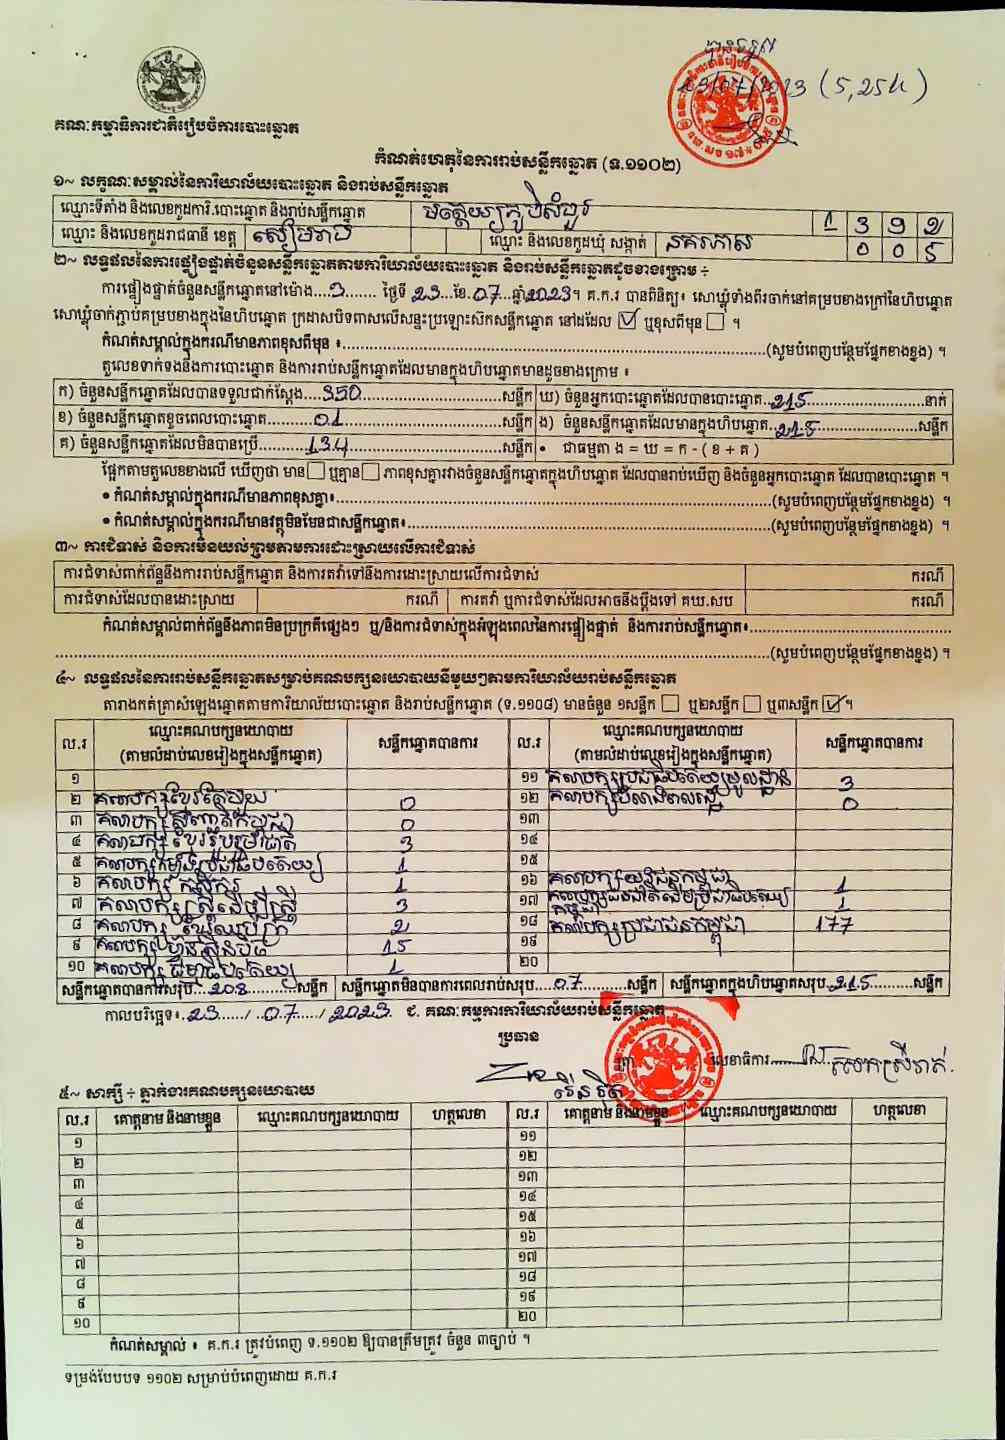 បានទទួល
23/07/2023 (5,25h)
គណៈកម្មាធិការជាតិរៀបចំការបោះឆ្នោត
កំណត់ហេតុនៃការរាប់សន្លឹកឆ្នោត (ទ.១១០២)
១~ លក្ខណៈសម្គាល់នៃការិយាល័យបោះឆ្នោត និងរាប់សន្លឹកឆ្នោត
ឈ្មោះទីតាំង និងលេខកូដការិ.បោះឆ្នោត និងរាប់សន្លឹកឆ្នោត មត្តេយ្យភូមិសំបួរ 1 3 9 2
ឈ្មោះ និងលេខកូដរាជធានី ខេត្ត សៀមរាប ឈ្មោះ និងលេខកូដឃុំ សង្កាត់ នគរភាស 0 0 5
២~ លទ្ធផលនៃការផ្ទៀងផ្ទាត់ចំនួនសន្លឹកឆ្នោតតាមការិយាល័យបោះឆ្នោត និងរាប់សន្លឹកឆ្នោតដូចខាងក្រោម ÷
ការផ្ទៀងផ្ទាត់ចំនួនសន្លឹកឆ្នោតនៅម៉ោង....3....... ថ្ងៃទី 23...ខែ.07...ឆ្នាំ2023។ គ.ក.រ បានពិនិត្យ៖ សោឃ្លុំទាំងពីរចាក់នៅគម្របខាងក្រៅនៃហិបឆ្នោត
សោឃ្លុំចាក់ភ្ជាប់គម្របខាងក្នុងនៃហិបឆ្នោត ក្រដាសបិទពាសលើសន្ទះប្រឡោះស៊កសន្លឹកឆ្នោត នៅដដែល ☑ ឬខុសពីមុន ☐ ។
កំណត់សម្គាល់ក្នុងករណីមានភាពខុសពីមុន ៖........(សូមបំពេញបន្ថែមផ្នែកខាងខ្នង) ។
តួលេខទាក់ទងនឹងការបោះឆ្នោត និងការរាប់សន្លឹកឆ្នោតដែលមានក្នុងហិបឆ្នោតមានដូចខាងក្រោម ៖
ក) ចំនួនសន្លឹកឆ្នោតដែលបានទទួលជាក់ស្តែង....350........សន្លឹក ឃ) ចំនួនអ្នកបោះឆ្នោតដែលបានបោះឆ្នោត..215........នាក់
ខ) ចំនួនសន្លឹកឆ្នោតខូចពេលបោះឆ្នោត........01........សន្លឹក ង) ចំនួនសន្លឹកឆ្នោតដែលមានក្នុងហិបឆ្នោត..215........សន្លឹក
គ) ចំនួនសន្លឹកឆ្នោតដែលមិនបានប្រើ........134........សន្លឹក • ជាធម្មតា ង = ឃ = ក - ( ខ + គ )
ផ្អែកតាមតួលេខខាងលើ ឃើញថា មាន ☐ ឬគ្មាន ☐ ភាពខុសគ្នារវាងចំនួនសន្លឹកឆ្នោតក្នុងហិបឆ្នោត ដែលបានរាប់ឃើញ និងចំនួនអ្នកបោះឆ្នោត ដែលបានបោះឆ្នោត ។
• កំណត់សម្គាល់ក្នុងករណីមានភាពខុសគ្នា៖........(សូមបំពេញបន្ថែមផ្នែកខាងខ្នង) ។
• កំណត់សម្គាល់ក្នុងករណីមានវត្ថុមិនមែនជាសន្លឹកឆ្នោត៖........(សូមបំពេញបន្ថែមផ្នែកខាងខ្នង) ។
៣~ ការជំទាស់ និងការមិនយល់ព្រមតាមការដោះស្រាយលើការជំទាស់
ការជំទាស់ពាក់ព័ន្ធនឹងការរាប់សន្លឹកឆ្នោត និងការតវ៉ាទៅនឹងការដោះស្រាយលើការជំទាស់ ករណី
ការជំទាស់ដែលបានដោះស្រាយ ករណី ការតវ៉ា ឬការជំទាស់ដែលអាចនឹងប្តឹងទៅ គឃ.សប ករណី
កំណត់សម្គាល់ពាក់ព័ន្ធនឹងភាពមិនប្រក្រតីផ្សេងៗ ឬ/និងការជំទាស់ក្នុងអំឡុងពេលនៃការផ្ទៀងផ្ទាត់ និងការរាប់សន្លឹកឆ្នោត៖........
........(សូមបំពេញបន្ថែមផ្នែកខាងខ្នង) ។
៤~ លទ្ធផលនៃការរាប់សន្លឹកឆ្នោតសម្រាប់គណបក្សនយោបាយនីមួយៗតាមការិយាល័យរាប់សន្លឹកឆ្នោត
តារាងកត់ត្រាសំឡេងឆ្នោតតាមការិយាល័យបោះឆ្នោត និងរាប់សន្លឹកឆ្នោត (ទ.១១០៨) មានចំនួន ១សន្លឹក ☐ ឬ២សន្លឹក ☐ ឬ៣សន្លឹក ☑ ។
ល.រ ឈ្មោះគណបក្សនយោបាយ (តាមលំដាប់លេខរៀងក្នុងសន្លឹកឆ្នោត) សន្លឹកឆ្នោតបានការ ល.រ ឈ្មោះគណបក្សនយោបាយ (តាមលំដាប់លេខរៀងក្នុងសន្លឹកឆ្នោត) សន្លឹកឆ្នោតបានការ
១ ១១ គណបក្សប្រជាធិបតេយ្យមូលដ្ឋាន 3
២ គណបក្សខ្មែរតែមួយ 0 ១២ 0
៣ គណបក្សសញ្ជាតិកម្ពុជា 0 ១៣
៤ គណបក្សខ្មែររួបរួមជាតិ 3 ១៤
៥ គណបក្សកម្លាំងប្រជាធិបតេយ្យ 1 ១៥
៦ គណបក្ស កសិករ 1 ១៦ គណបក្សយុវជនកម្ពុជា 1
៧ គណបក្សស្ត្រីដើម្បីស្ត្រី 3 ១៧ គណបក្សជនជាតិដើមប្រជាធិបតេយ្យកម្ពុជា 1
៨ គណបក្ស ខ្មែរឈប់ក្រ 2 ១៨ គណបក្សប្រជាជនកម្ពុជា 177
៩ គណបក្សហ្វ៊ុនស៊ិនប៉ិច 15 ១៩
១០ គណបក្ស ធម្មាធិបតេយ្យ 1 ២០
សន្លឹកឆ្នោតបានការសរុប...208........សន្លឹក សន្លឹកឆ្នោតមិនបានការពេលរាប់សរុប....07........សន្លឹក សន្លឹកឆ្នោតក្នុងហិបឆ្នោតសរុប..215........សន្លឹក
កាលបរិច្ឆេទ៖.23...../..07...../.2023. ជ. គណៈកម្មការការិយាល័យរាប់សន្លឹកឆ្នោត
ប្រធាន
លេខាធិការ........
៥~ សាក្សី ÷ ភ្នាក់ងារគណបក្សនយោបាយ
ល.រ គោត្តនាម និងនាមខ្លួន ឈ្មោះគណបក្សនយោបាយ ហត្ថលេខា ល.រ គោត្តនាម និងនាមខ្លួន ឈ្មោះគណបក្សនយោបាយ ហត្ថលេខា
១ ១១
២ ១២
៣ ១៣
៤ ១៤
៥ ១៥
៦ ១៦
៧ ១៧
៨ ១៨
៩ ១៩
១០ ២០
កំណត់សម្គាល់ ៖ គ.ក.រ ត្រូវបំពេញ ទ.១១០២ ឱ្យបានត្រឹមត្រូវ ចំនួន ៣ច្បាប់ ។
ទម្រង់បែបបទ ១១០២ សម្រាប់បំពេញដោយ គ.ក.រ